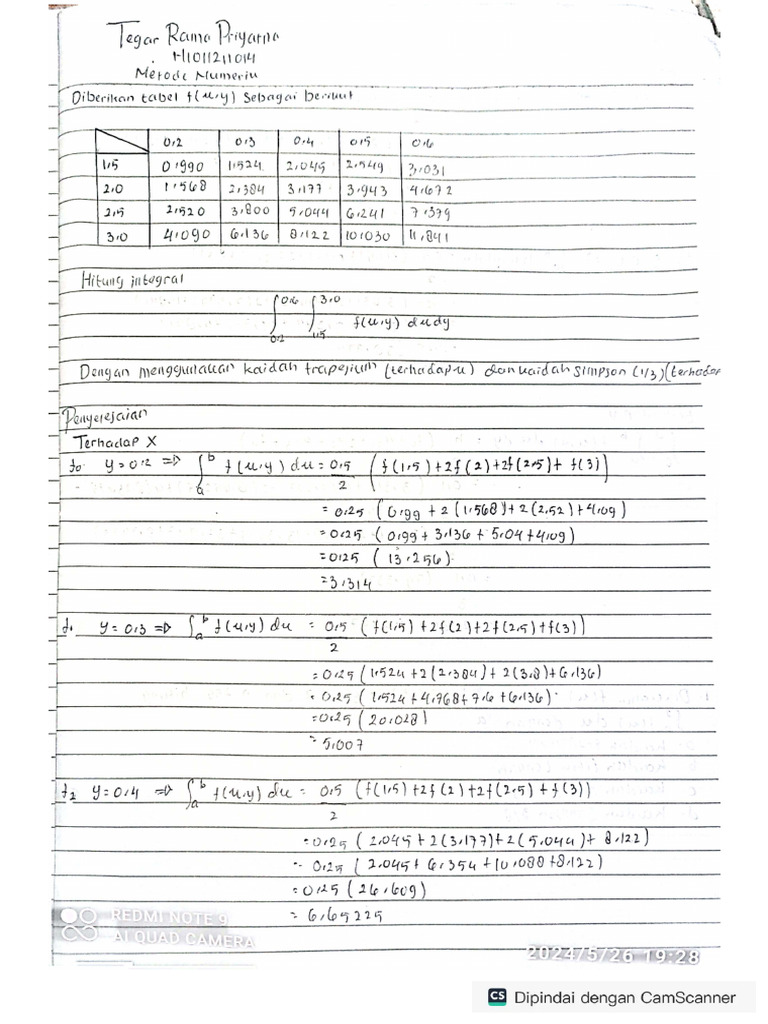 Tegar Rama Priyarna
H1011211014
Metode Numerik
Diberikan tabel f(x,y) sebagai berikut
0,2 0,3 0,4 0,5 0,6
1,5 0,990 1,524 2,045 2,549 3,031
2,0 1,568 2,384 3,177 3,943 4,672
2,5 2,520 3,800 5,044 6,241 7,379
3,0 4,090 6,136 8,122 10,030 11,841
Hitung integral
∫ 0,6 0,2 ∫ 3,0 1,5 f(x,y) dx dy
Dengan menggunakan kaidah trapesium (terhadap x) dan kaidah Simpson (1/3) (terhadap
Penyelesaian
Terhadap X
f₀ y = 0,2 => ∫ₐᵇ f(x,y) dx = 0,5/2 (f(1,5) + 2f(2) + 2f(2,5) + f(3))
= 0,25 (0,99 + 2(1,568) + 2(2,52) + 4,09)
= 0,25 (0,99 + 3,136 + 5,04 + 4,09)
= 0,25 (13,256)
= 3,314
f₁ y = 0,3 => ∫ₐᵇ f(x,y) dx = 0,5/2 (f(1,5) + 2f(2) + 2f(2,5) + f(3))
= 0,25 (1,524 + 2(2,384) + 2(3,8) + 6,136)
= 0,25 (1,524 + 4,768 + 7,6 + 6,136)
= 0,25 (20,028)
= 5,007
f₂ y = 0,4 => ∫ₐᵇ f(x,y) dx = 0,5/2 (f(1,5) + 2f(2) + 2f(2,5) + f(3))
= 0,25 (2,045 + 2(3,177) + 2(5,044) + 8,122)
= 0,25 (2,045 + 6,354 + 10,088 + 8,122)
= 0,25 (26,609)
= 6,65225
REDMI NOTE 9
AI QUAD CAMERA
2024/5/26 19:28
CS Dipindai dengan CamScanner